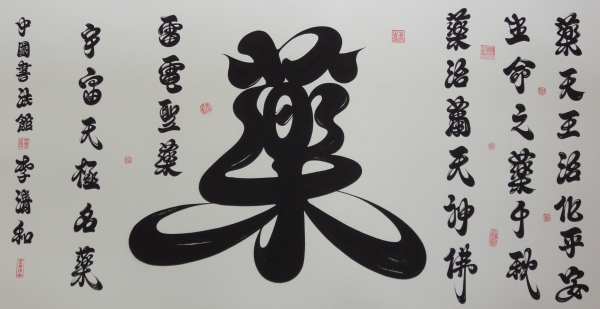 藥天王治化平安
生命之藥千秋
藥治蕭天神佛
藥
雷電聖藥
宇宙天極名藥
中國書法館
李濤和